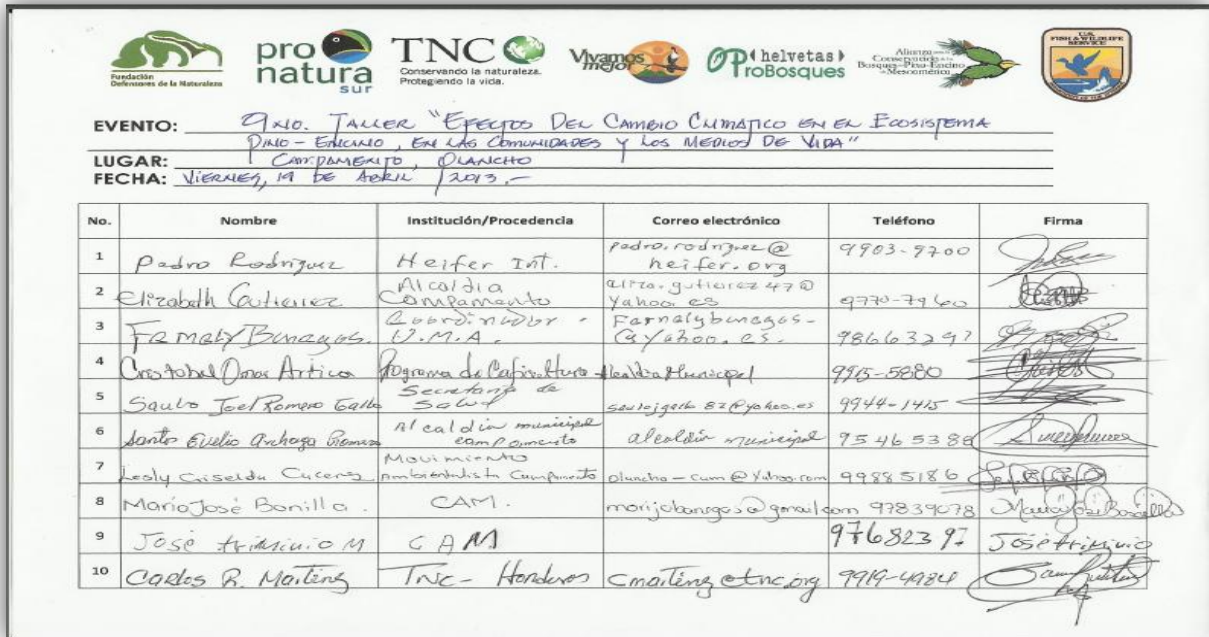 Fundación
Defensores de la Naturaleza
pro
natura
sur
TNC
Conservando la naturaleza.
Protegiendo la vida.
Vivamos
mejor
helvetas
ProBosques
Alianza para la
Conservación de los
Bosques de Pino-Encino
de Mesoamérica
U.S.
FISH & WILDLIFE
SERVICE
EVENTO: TALLER "EFECTOS DEL CAMBIO CLIMATICO EN EL ECOSISTEMA
PINO - ENCINO, EN LAS COMUNIDADES Y LOS MEDIOS DE VIDA"
LUGAR: CAMPAMENTO, OLANCHO
FECHA: VIERNES, 19 DE ABRIL /2013.-
No. Nombre Institución/Procedencia Correo electrónico Teléfono Firma
1 Pedro Rodriguez Heifer Int. pedro.rodriguez@heifer.org 9903-9700
2 Elizabeth Gutierrez Alcaldia Campamento 9770-7960
3 Coordinador U.M.A. @yahoo.es.
4 Cristobal Omar Artica Programa de Caficultura Alcaldia Municipal 9915-5880
5 Saulo Joel Romero Secretaria de Salud 9944-1415
6 Santos Evelio Archaga Alcaldia municipal campamento alcaldia municipal 95465388
7 Lesly Griselda Movimiento Ambientalista Campamento olancho-cam@yahoo.com 99885186
8 María José Bonilla. CAM. morijobanegas@gmail.com 97839078 María José Bonilla
9 José triminio M CAM 97682397 José triminio
10 Carlos R. TNC- Honduras 9919-4984